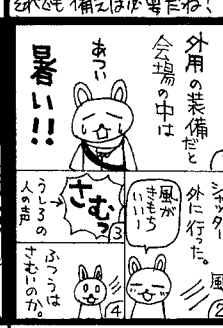 それでも備えは必要だね!
外用の装備だと
会場の中は
あつい
暑い!!
シャッター
外に行った。
風が
きもち
いいー
さむっ
うしろの
人の声
3
ふつうは
さむいのか。
4